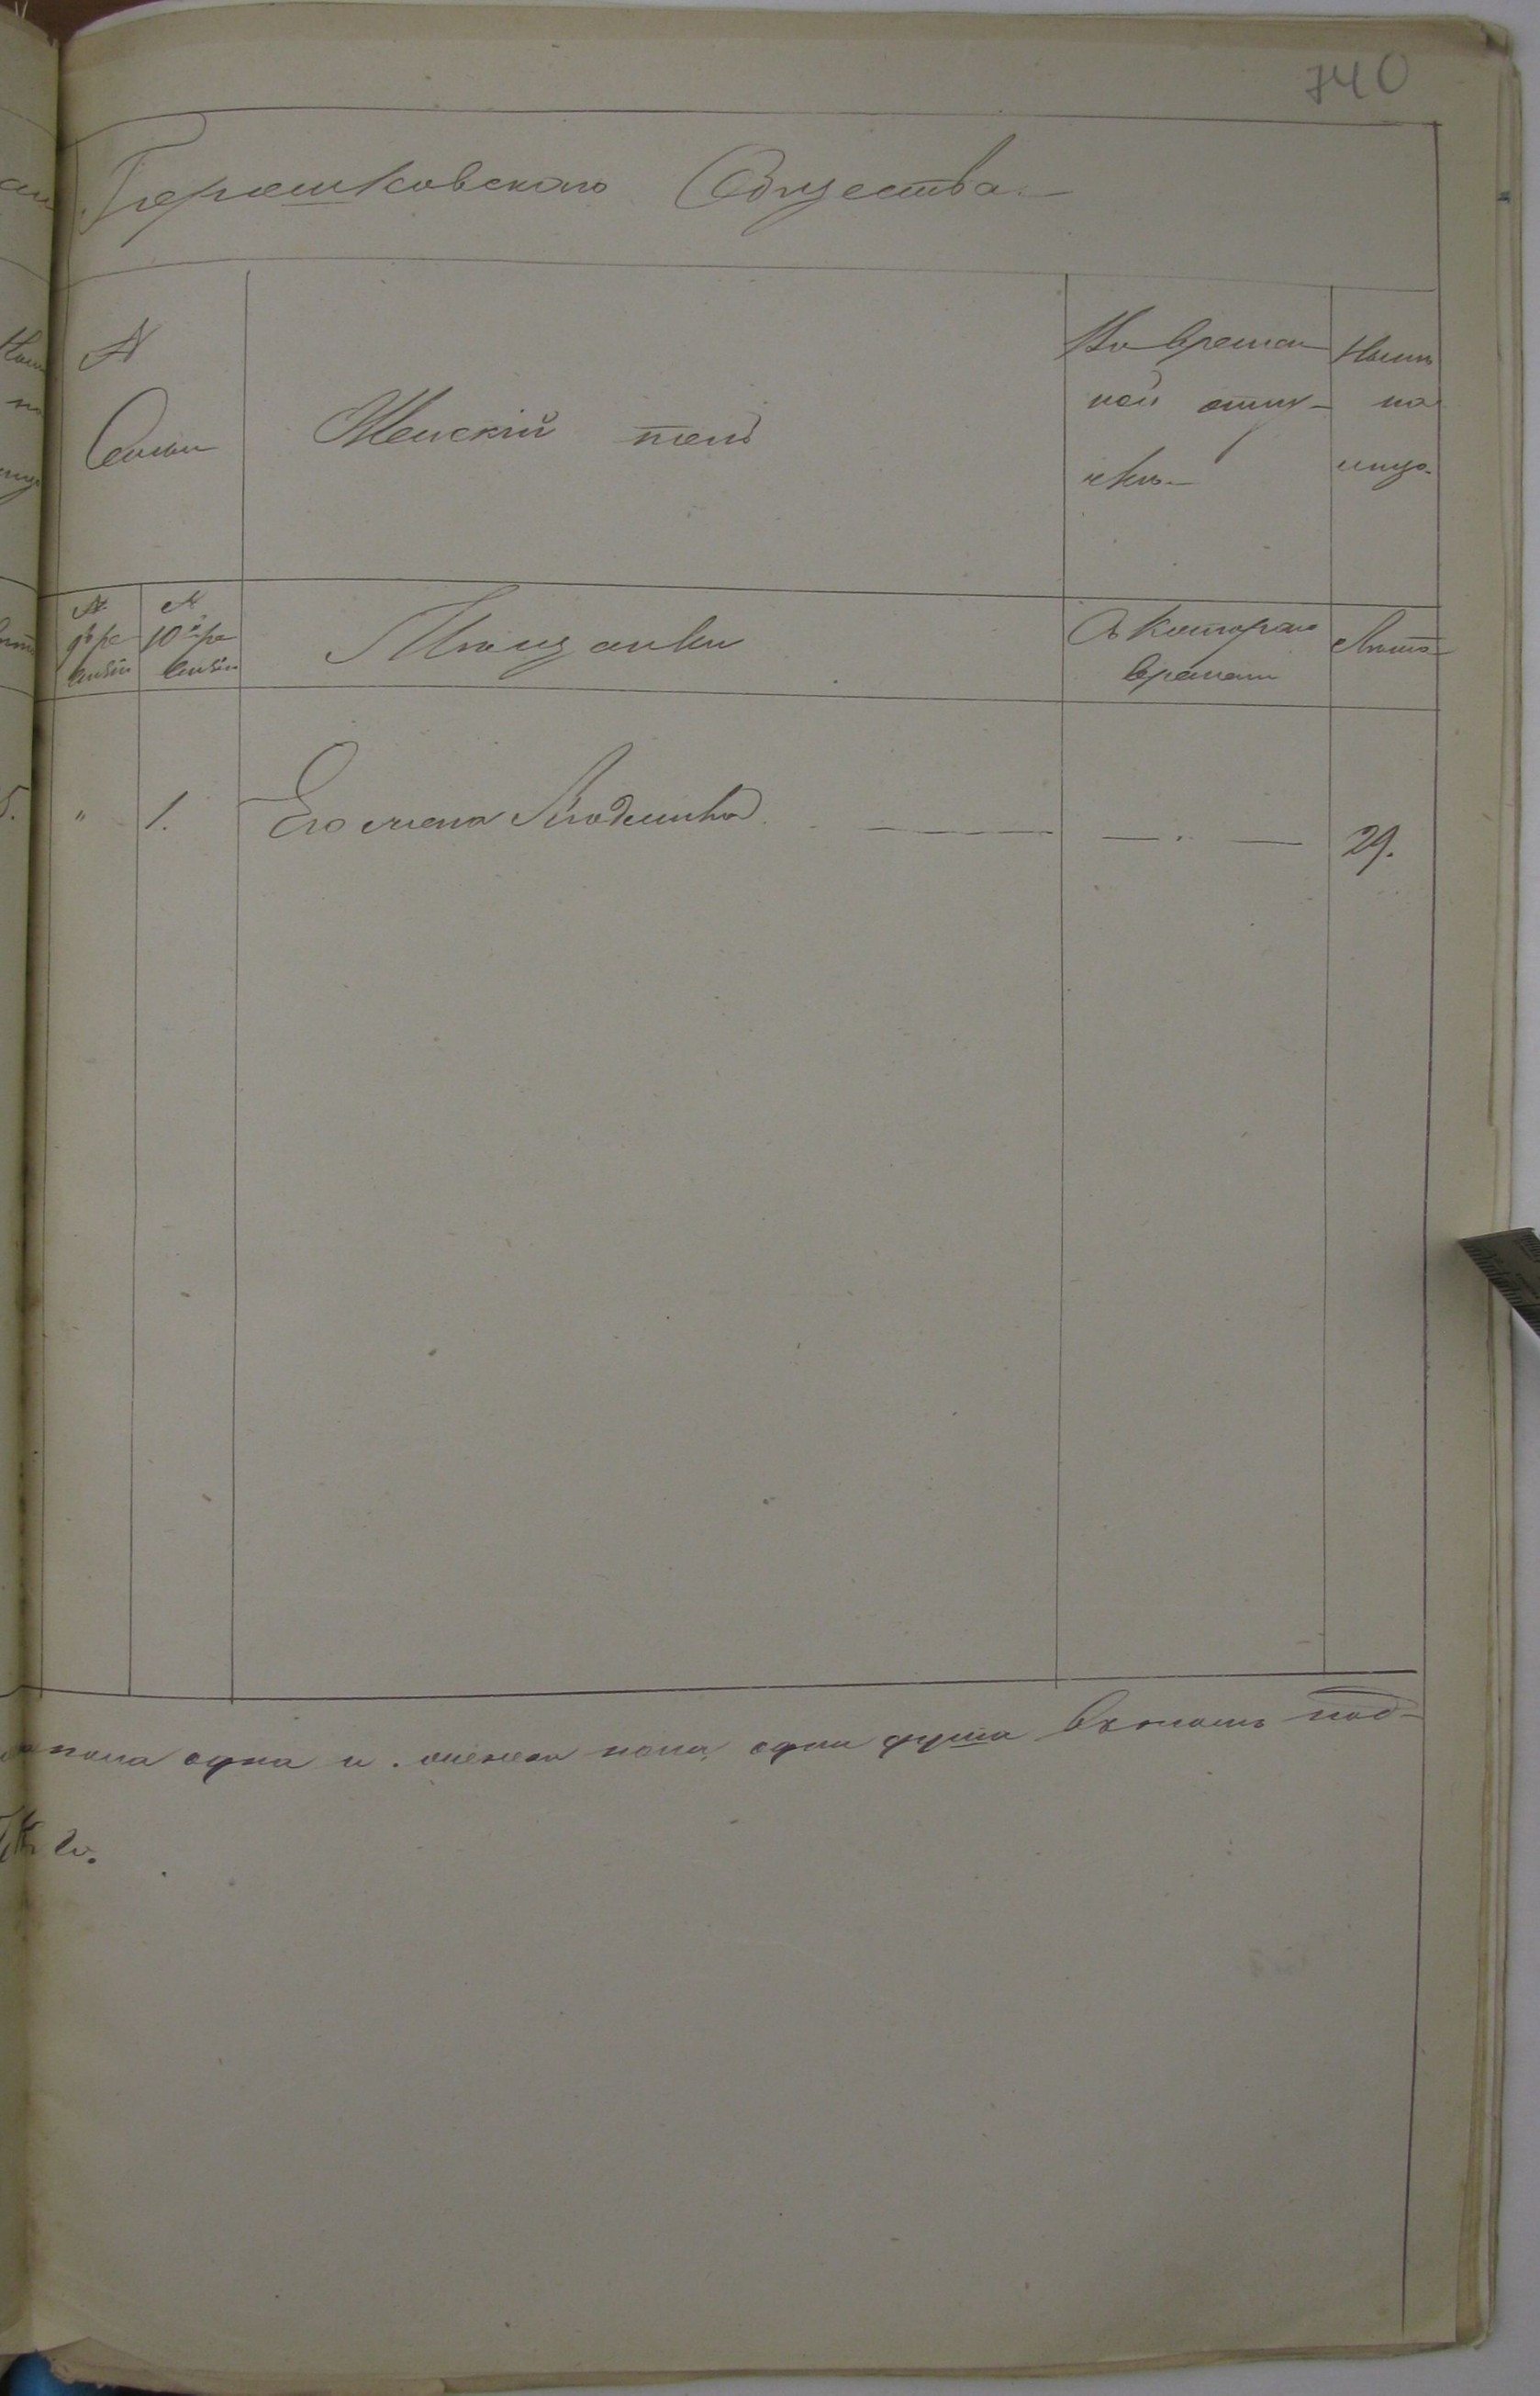 740
Горошковскаго Общества.
№
Семьи
Женскій полъ
Во времен
ной отлу-
чкѣ.
Нынѣ
на
лицо.
№
9й ре
визіи
№
10й ре
визіи
Мѣщанки
Съ котораго
времени
Лѣта
"
1.
Его жена
— " —
29.
пола одна и женска пола одна душа въ томъ под-